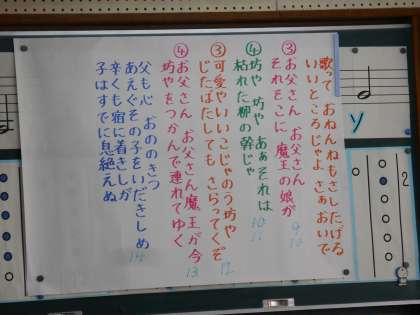 歌って おねんねもさしたげる
いいところじゃよ さぁおいで
③お父さん お父さん
それそこに 魔王の娘が
9
10
④坊や 坊や あぁそれは
枯れた柳の幹じゃ
10
11
③可愛やいいこじゃのう坊や
じたばたしても さらってくぞ
12
④お父さん お父さん 魔王が今
坊やをつかんで連れてゆく
13
父も心 おののきつ
あえぐその子をいだきしめ
辛くも宿に着きしが
子はすでに息絶えぬ
14
y
2